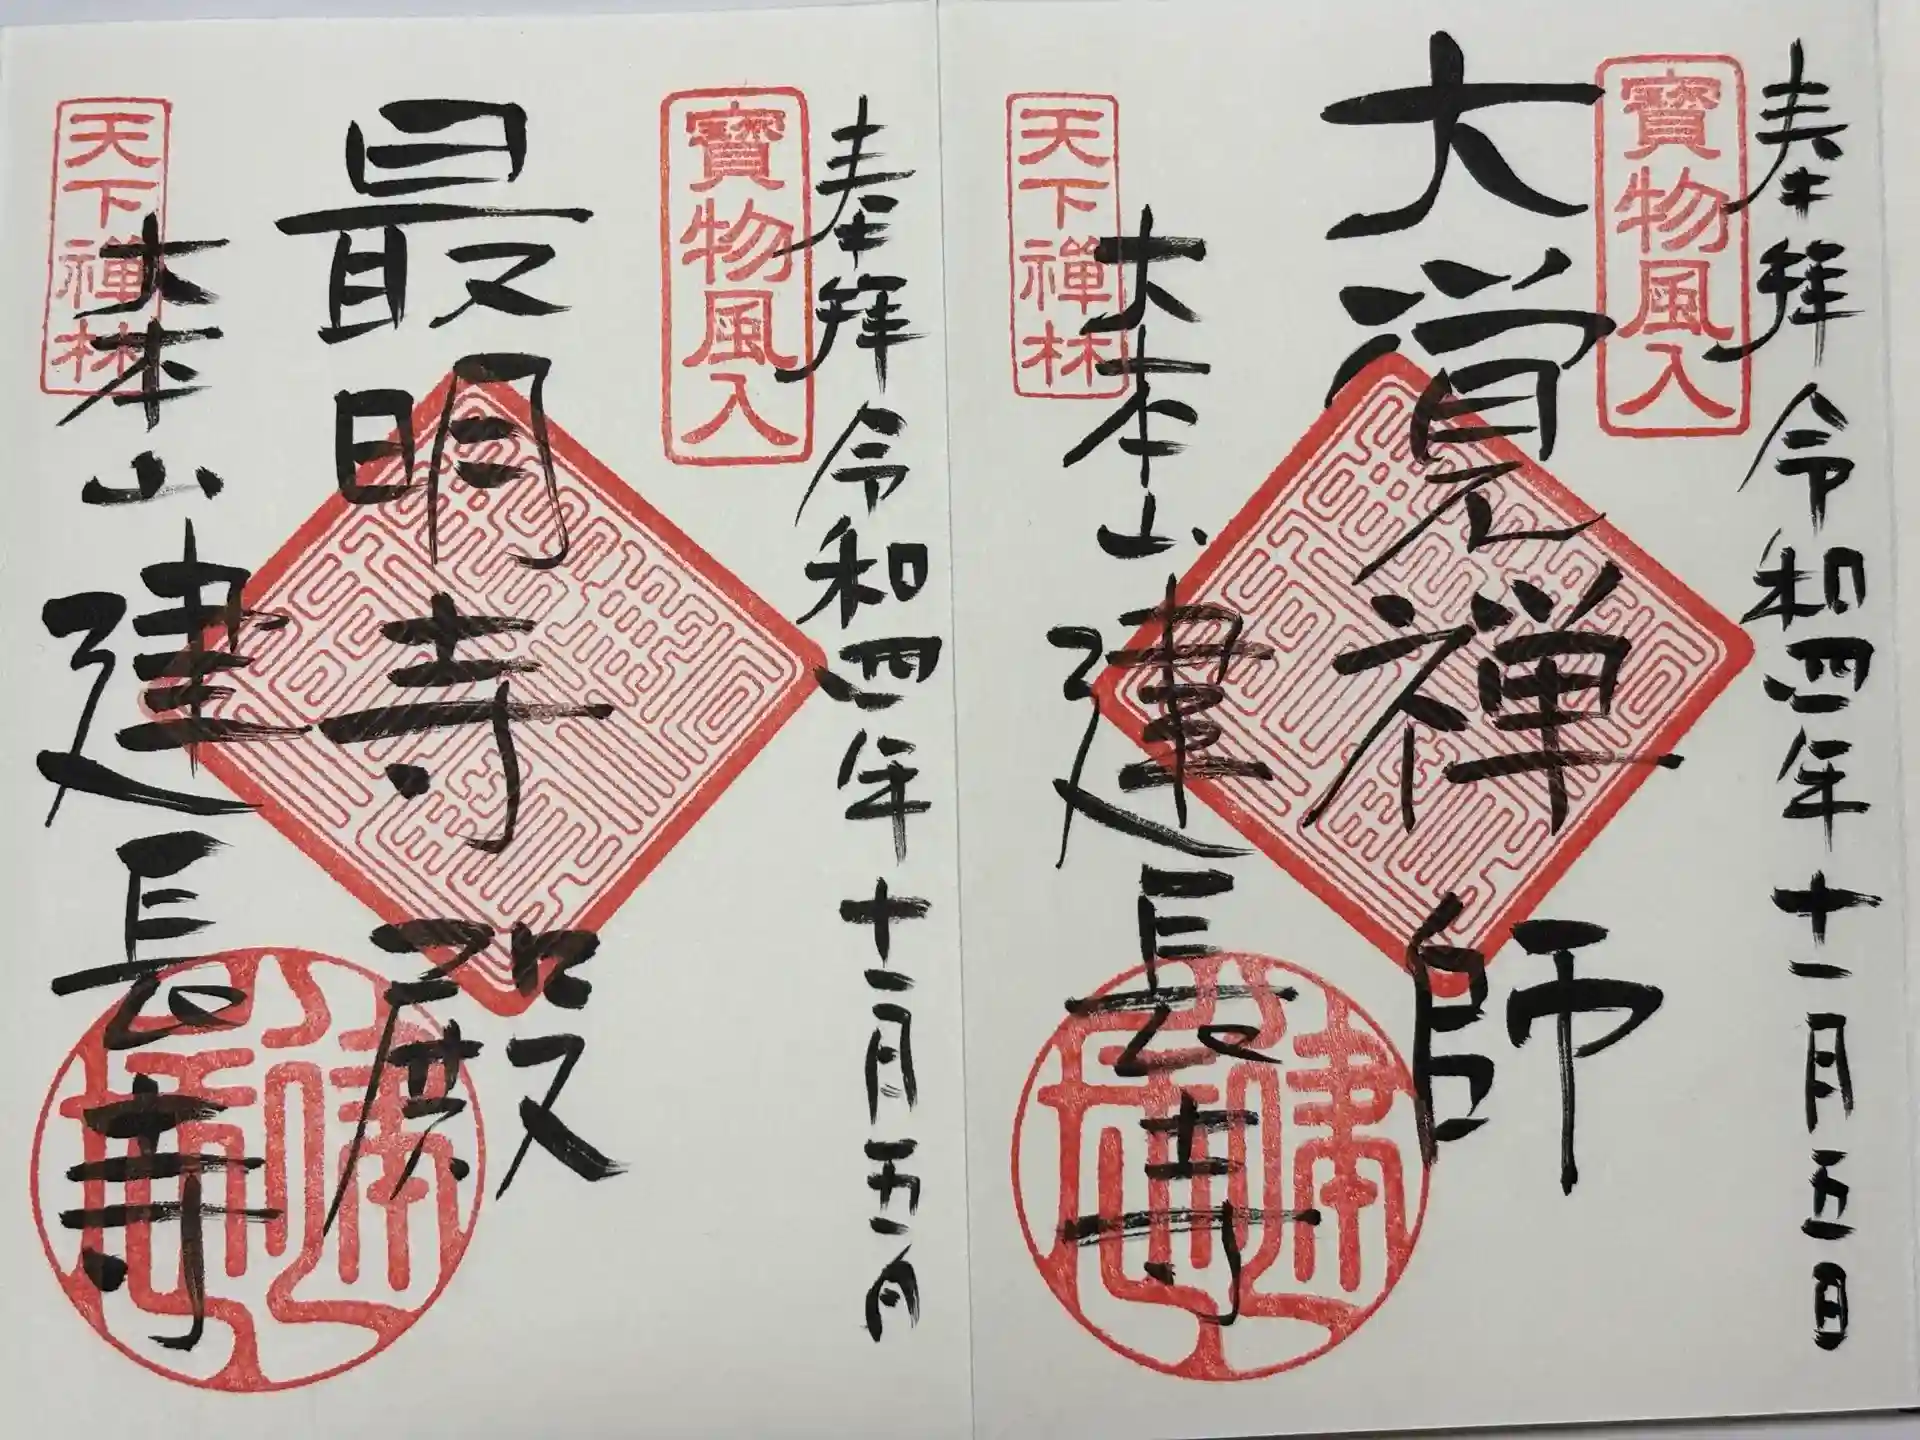 奉拝 令和四年十一月五日
寶物風入
大覚禅師
天下禪林
大本山建長寺
奉拝 令和四年十一月五日
寶物風入
最明寺殿
天下禪林
大本山建長寺